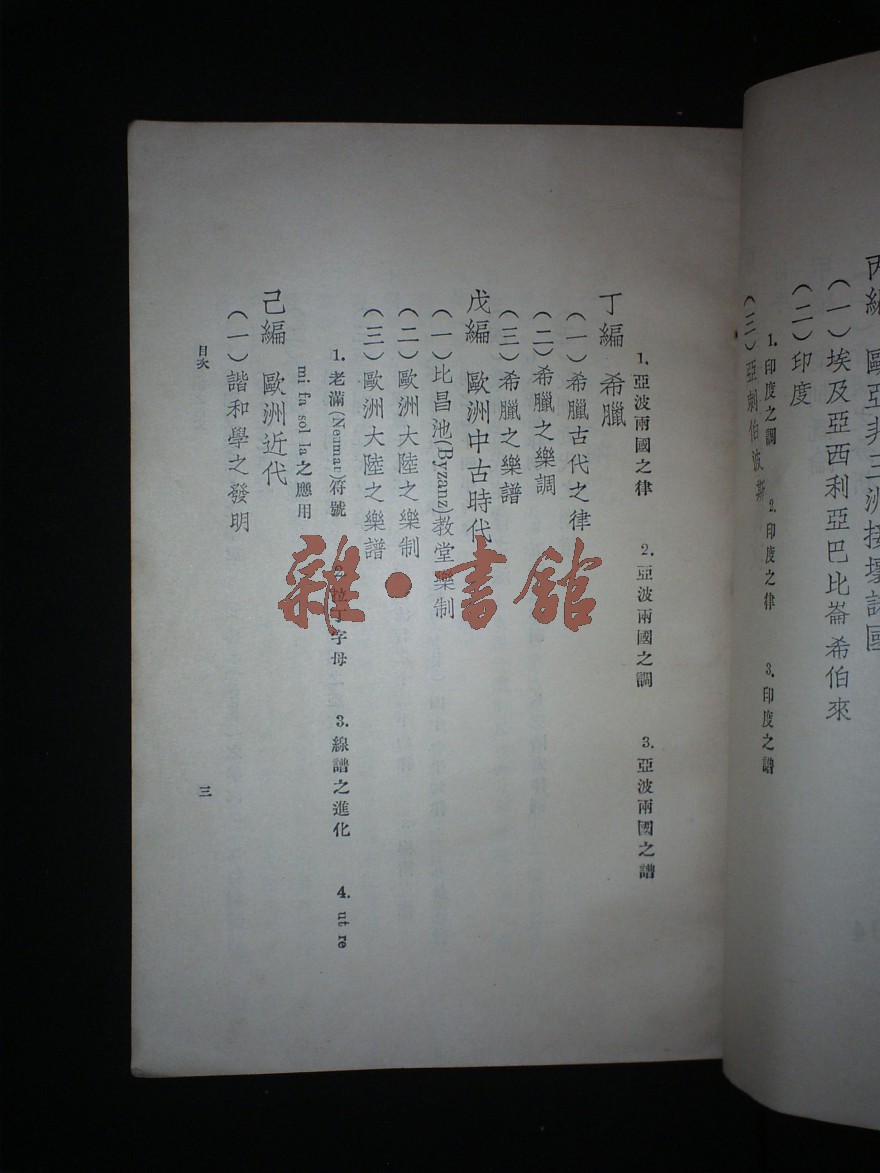 丙編 歐亞非三洲接壤諸國
（一）埃及亞西利亞巴比崙希伯來
（二）印度
1. 印度之調 2. 印度之律 3. 印度之譜
（三）亞剌伯波斯
1. 亞波兩國之律 2. 亞波兩國之調 3. 亞波兩國之譜
丁編 希臘
（一）希臘古代之律
（二）希臘之樂調
（三）希臘之樂譜
戊編 歐洲中古時代
（一）比昌池(Byzanz)教堂樂制
（二）歐洲大陸之樂制
（三）歐洲大陸之樂譜
1. 老滿(Neumae)符號 2. 拉丁字母 3. 線譜之進化 4. ut re
mi fa sol la之應用
己編 歐洲近代
（一）諧和學之發明
目次
三
雜·書館